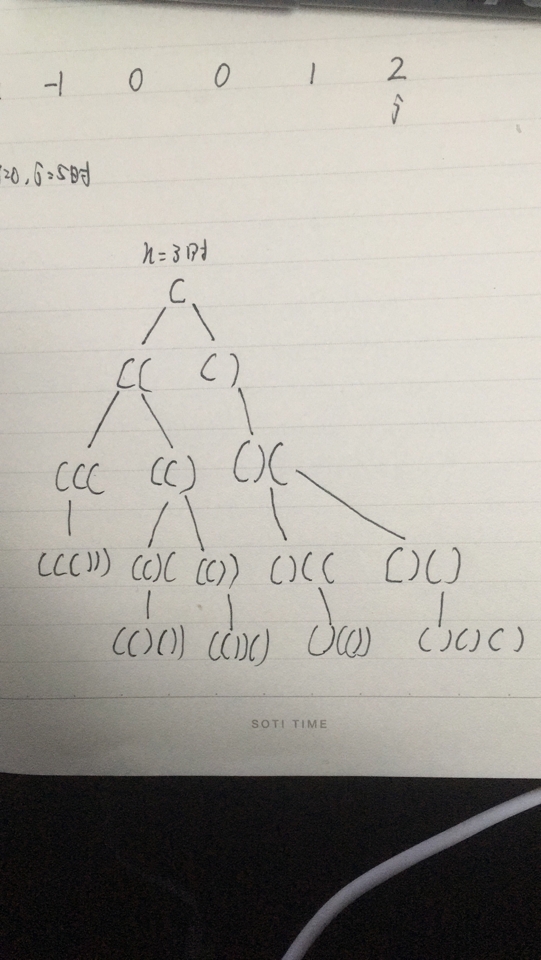 -1 0 0 1 2
j
=0, j=5时
n=3时
(
(( ()
((( (() ()(
((())) (()( (()) ()(( ()()
(()()) (())() ()(()) ()()()
SOTI TIME